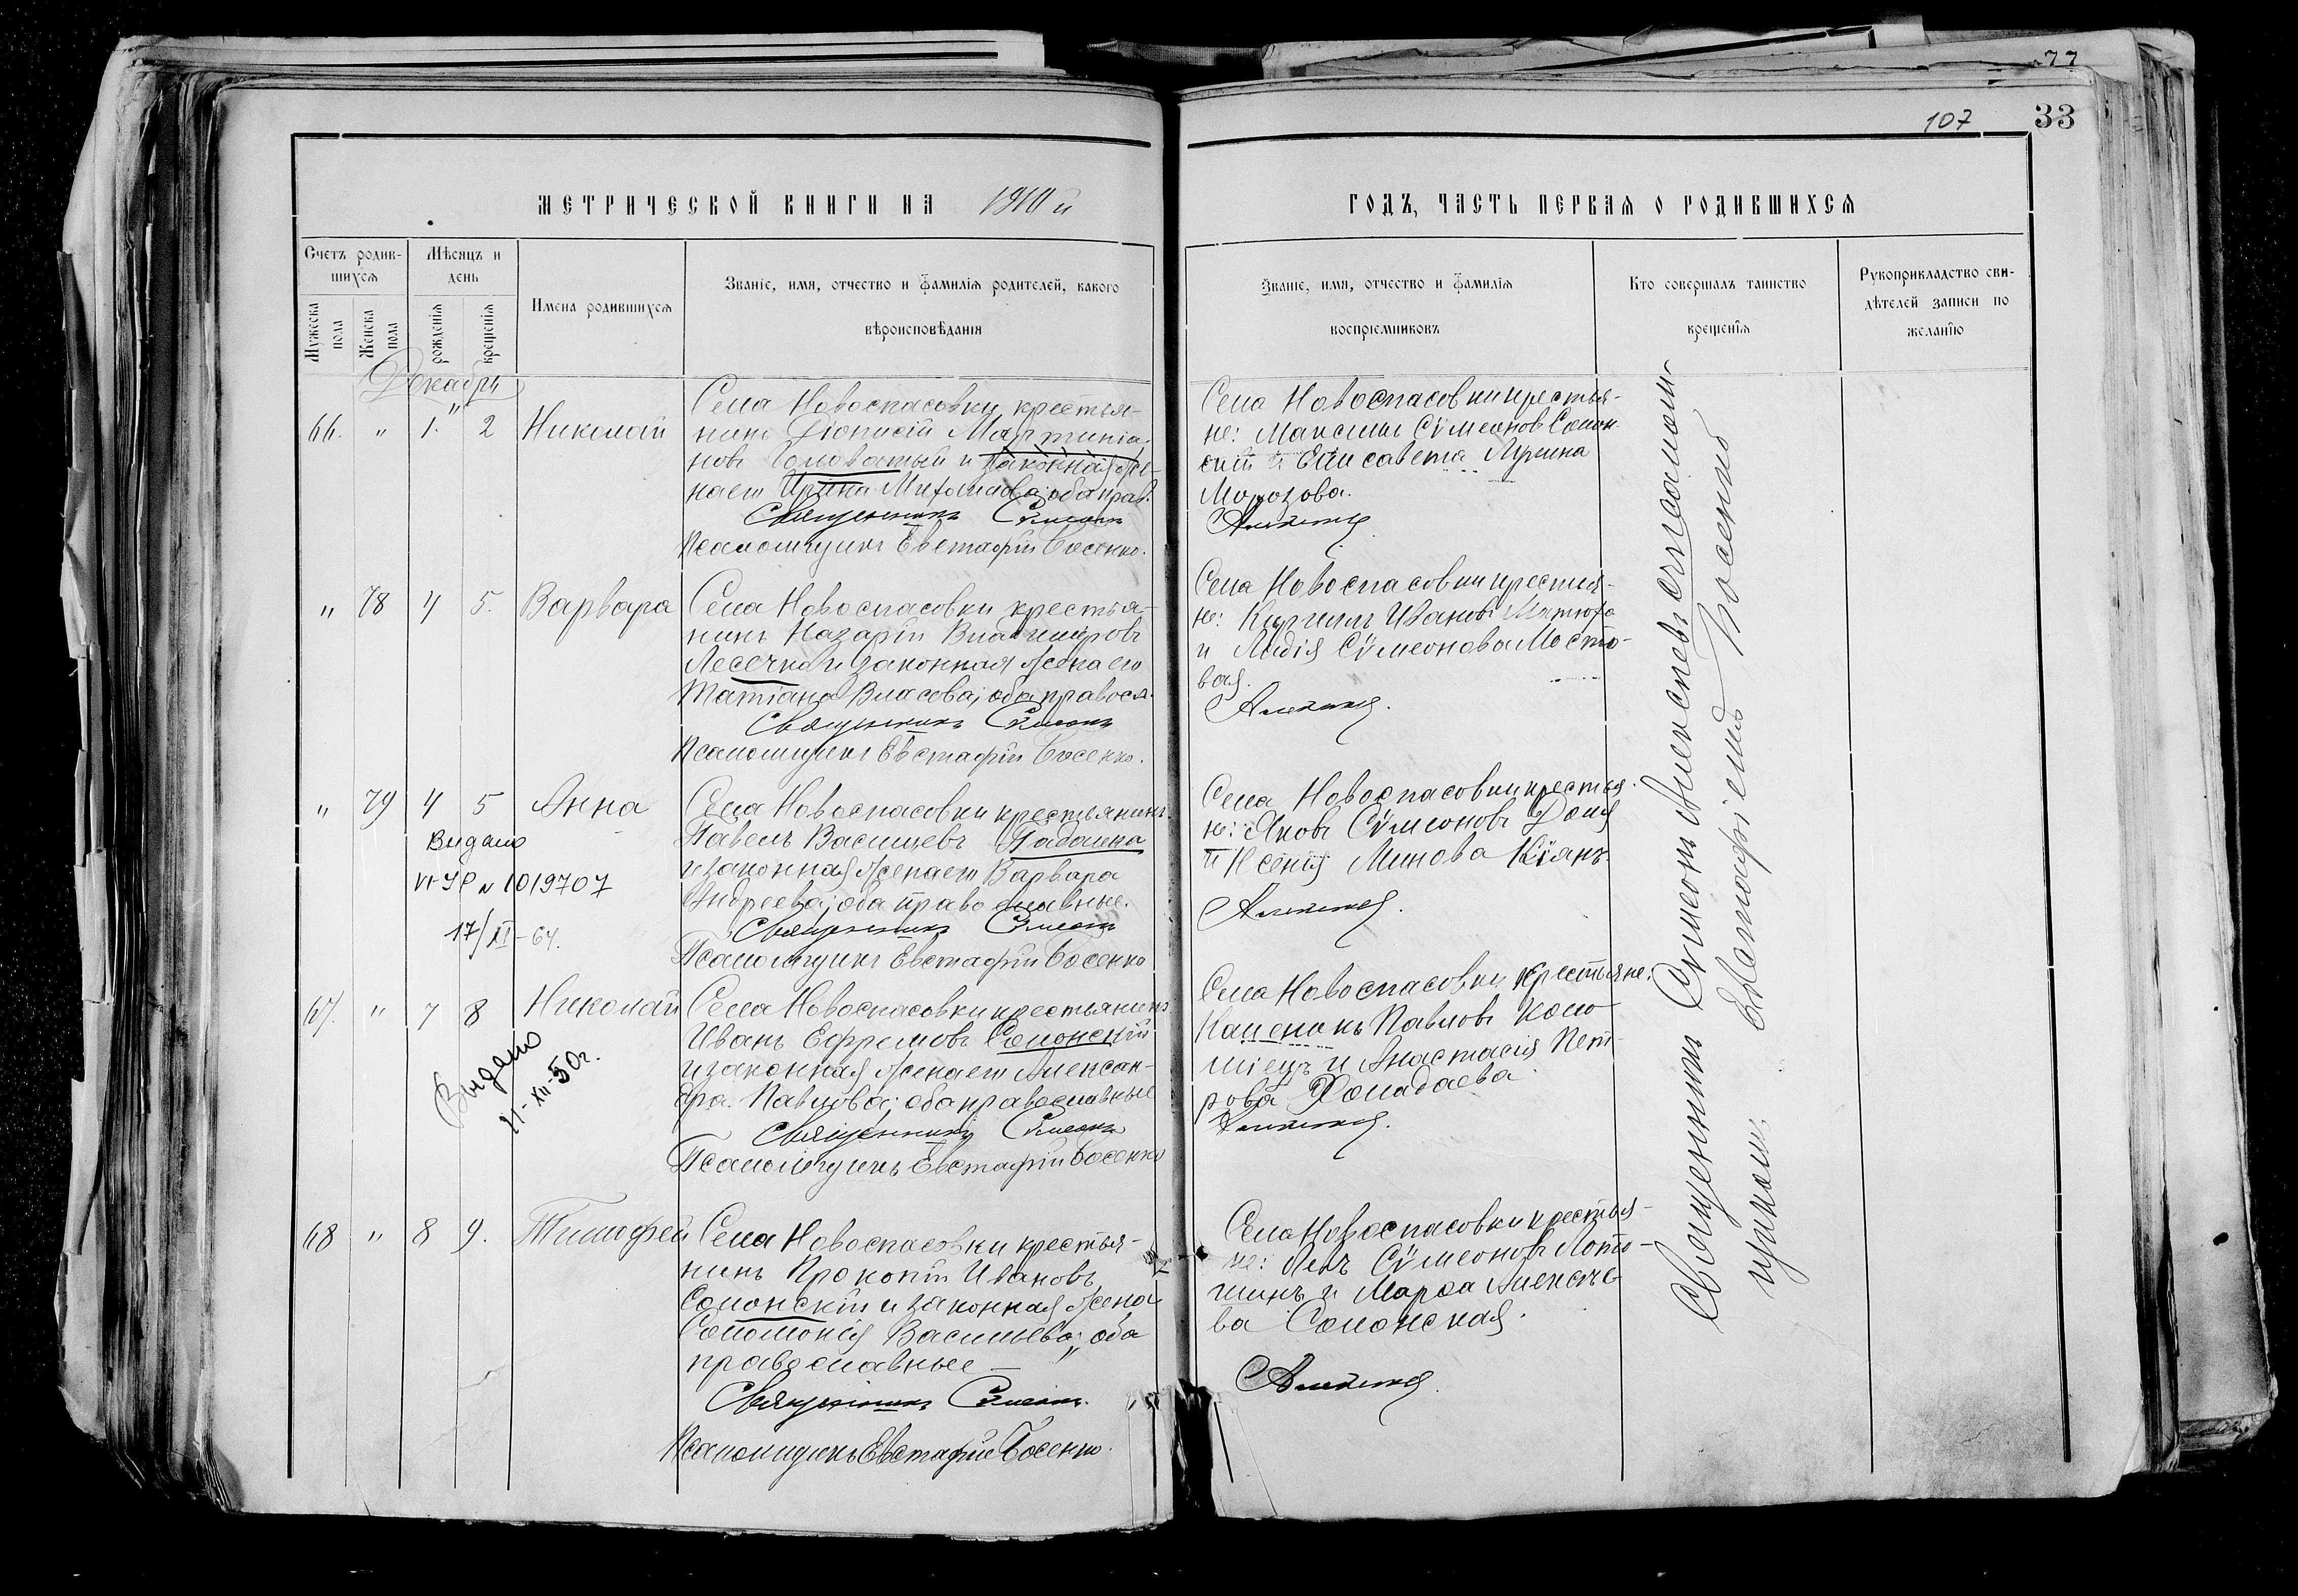 77
107 33
МЕТРИЧЕСКОЙ КНИГИ НА 1910 й
ГОДЪ, ЧАСТЬ ПЕРВАЯ О РОДИВШИХСЯ
Счетъ родив-
шихся
Мужеска пола
Женска пола
Мѣсяцъ и
день
рожденія
крещенія
Имена родившихся
Званіе, имя, отчество и фамилія родителей, какого
вѣроисповѣданія
Званіе, имя, отчество и фамилія
воспріемниковъ
Кто совершалъ таинство
крещенія
Рукоприкладство сви-
дѣтелей записи по
желанію
Декабрь
66. " 1. 2 Николай
Села Новоспасовки крестья-
нинъ Діонисій Мартиніа-
новъ Головатый и законная же-
на его Ирина Михайлова; оба прав.
Священникъ Сѵмеонъ
Псаломщикъ Евстафій Босенко.
Села Новоспасовки крестья-
не: Максимъ Сѵмеоновъ Солон-
скій и Елисавета Лукина
Морозова.
" 78 4 5. Варвара
Села Новоспасовки крестья-
нинъ Назарій Владиміровъ
Лесечко и законная жена его
Татіана Власова; оба правосл.
Священникъ Сѵмеонъ
Псаломщикъ Евстафій Босенко.
Села Новоспасовки крестья-
не: Кириллъ Ивановъ
и Лидія Сѵмеонова Мосто-
вая.
" 79 4 5 Анна
Видано
VI-УР N 1019707
17/XI-64.
Села Новоспасовки крестьянинъ
Павелъ Васильевъ
и законная жена его Варвара
Андреева; оба православные.
Священникъ Сѵмеонъ
Псаломщикъ Евстафій Босенко
Села Новоспасовки крестья-
не: Яковъ Сѵмеоновъ Доля
и Ксенія Минова Кіянъ
67. " 7 8 Николай
Выдано
21-XII-50г.
Села Новоспасовки крестьянинъ
Иванъ Ефремовъ Солонскій
и законная жена его Алексан-
дра Павлова; оба православные
Священникъ Сѵмеонъ
Псаломщикъ Евстафій Босенко
Села Новоспасовки крестьяне:
Каленикъ Павловъ Коло-
міецъ и Анастасія Пет-
рова
68 " 8 9. Тимофей
Села Новоспасовки крестья-
нинъ Прокопій Ивановъ
Солонскій и законная жена
Соломонія Васильева; оба
православные
Священникъ Сѵмеонъ.
Псаломщикъ Евстафій Босенко.
Села Новоспасовки крестья-
не: Левъ Сѵмеоновъ
и Марѳа Алексѣе-
ва Солонская.
Священникъ Сѵмеонъ съ псалом-
щикомъ Евстафіемъ Босенко